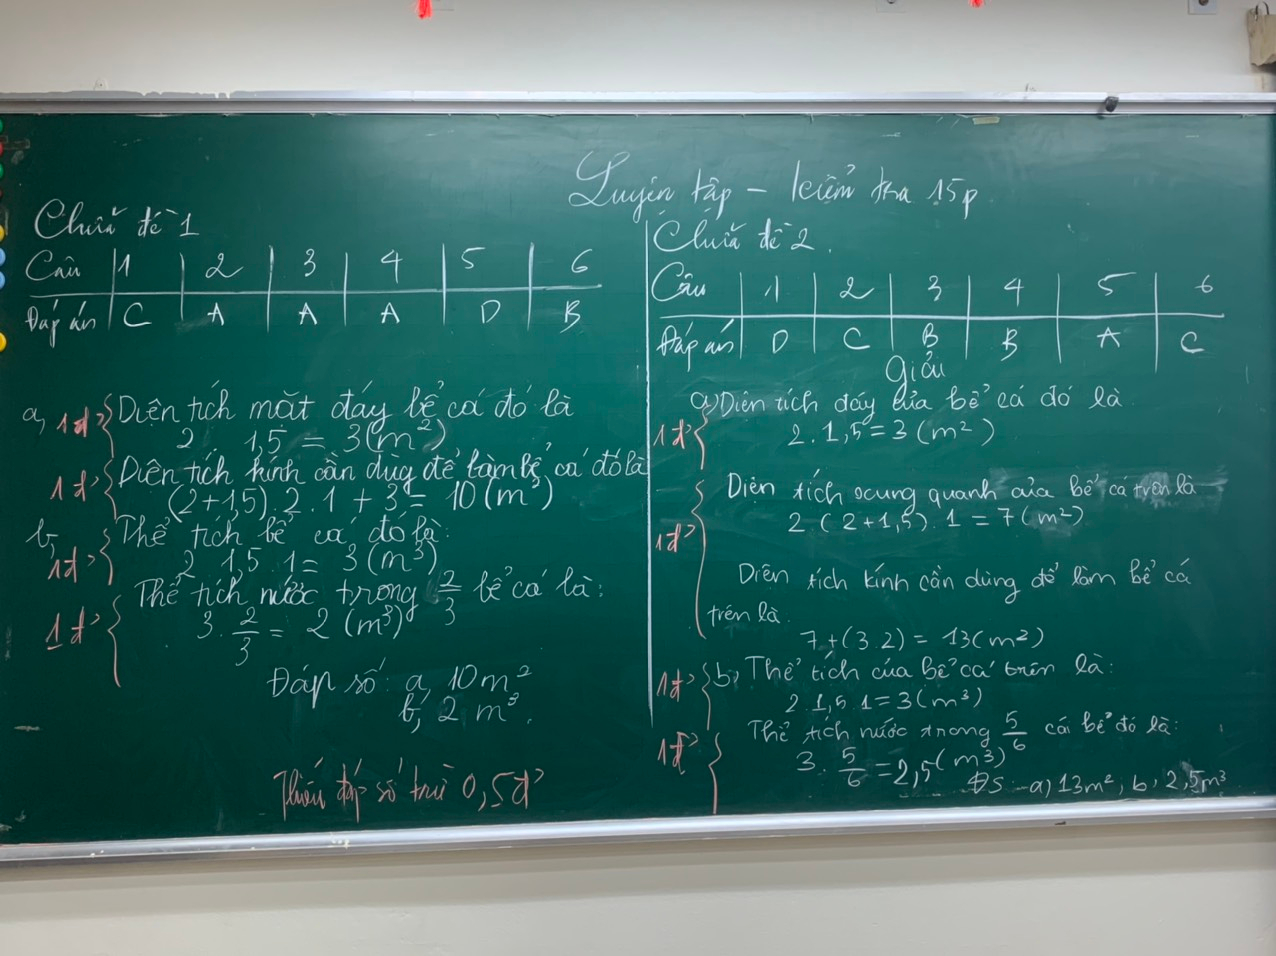 Luyện tập - kiểm tra 15p
Chữa đề 1
Câu 1 2 3 4 5 6
Đáp án C A A A D B
a, 1đ Diện tích mặt đáy bể cá đó là
2 . 1,5 = 3 (m²)
1đ Diện tích kính cần dùg để làm bể cá đó là
(2+1,5).2.1 + 3 = 10 (m²)
b, 1đ Thể tích bể cá đó là:
2 . 1,5 . 1 = 3 (m³)
1đ Thể tích nước trong 2/3 bể cá là:
3 . 2/3 = 2 (m³)
Đáp số: a, 10m²
b, 2 m³.
Thiếu đáp số trừ 0,5đ
Chữa đề 2.
Câu 1 2 3 4 5 6
Đáp án D C B B A C
Giải
1đ a, Diện tích đáy của bể cá đó là
2 . 1,5 = 3 (m²)
1đ Diện tích xung quanh của bể cá trên là
2.(2+1,5).1 = 7 (m²)
Diện tích kính cần dùng để làm bể cá
trên là.
7 + (3.2) = 13 (m²)
1đ b, Thể tích của bể cá trên là:
2.1,5.1 = 3 (m³)
1đ Thể tích nước trong 5/6 cái bể đó là:
3 . 5/6 = 2,5 (m³)
ĐS a) 13m², b, 2,5m³